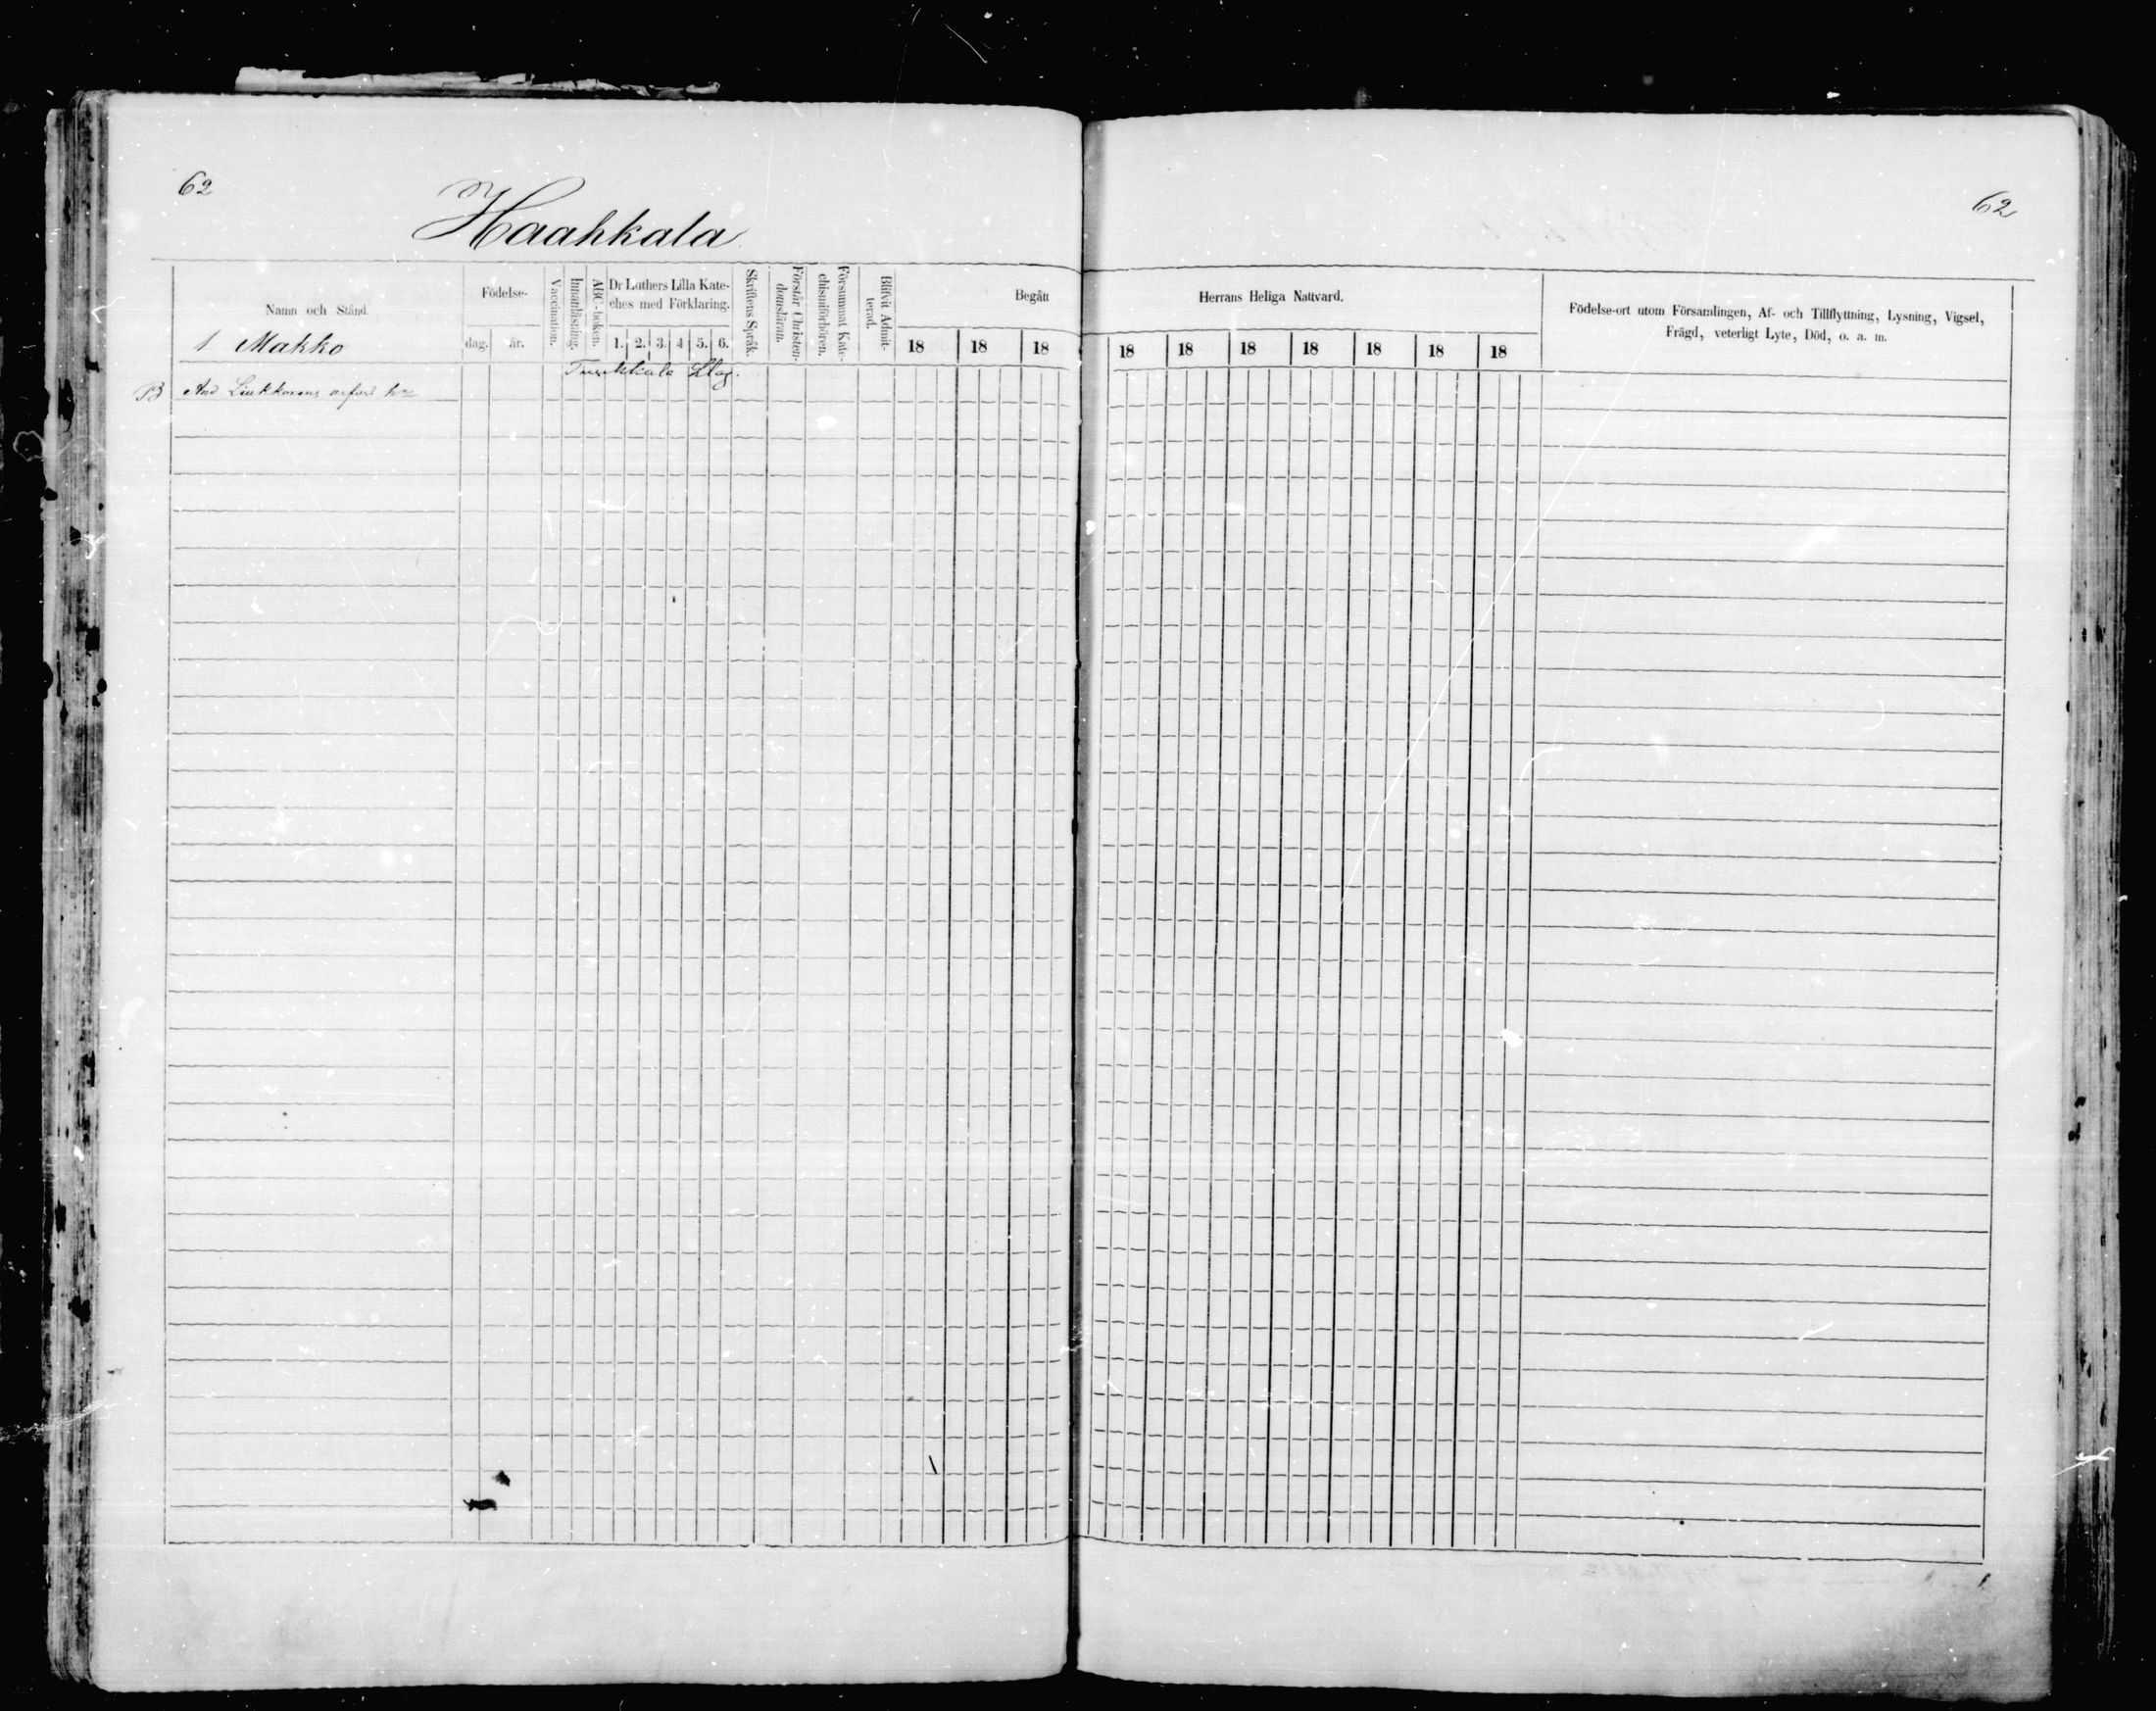 62
62
Haahkala
Namn och Stånd.
1 Makko
Födelse-
dag.
år.
Vaccination.
Innanläsning.
ABC-boken.
Dr Luthers Lilla Kate-
ches med Förklaring.
1. 2. 3. 4 5. 6.
Skriftens Språk.
Förstår Christen-
domsläran.
Försummat Kate-
chismiförhören.
Blifvit Admit-
terad.
Begått
18 18 18
Herrans Heliga Nattvard.
18 18 18 18 18 18 18
Födelse-ort utom Församlingen, Af- och Tillflyttning, Lysning, Vigsel,
Frägd, veterligt Lyte, Död, o. a. m.
B And